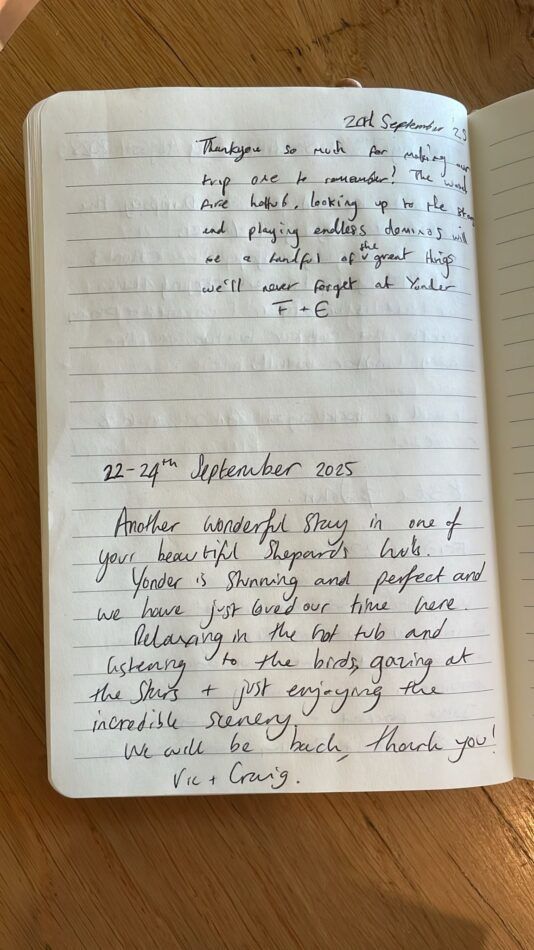 20th September 25
Thankyou so much for making our
trip one to remember! The wood
fire hottub, looking up to the stars
and playing endless dominos will
be a handful of the great things
we'll never forget at Yonder
F + E
22-24th September 2025
Another wonderful stay in one of
your beautiful Shepards huts.
Yonder is stunning and perfect and
we have just loved our time here.
Relaxing in the hot tub and
listening to the birds, gazing at
the stars + just enjoying the
incredible scenery.
We will be back, thank you!
Vic + Craig.